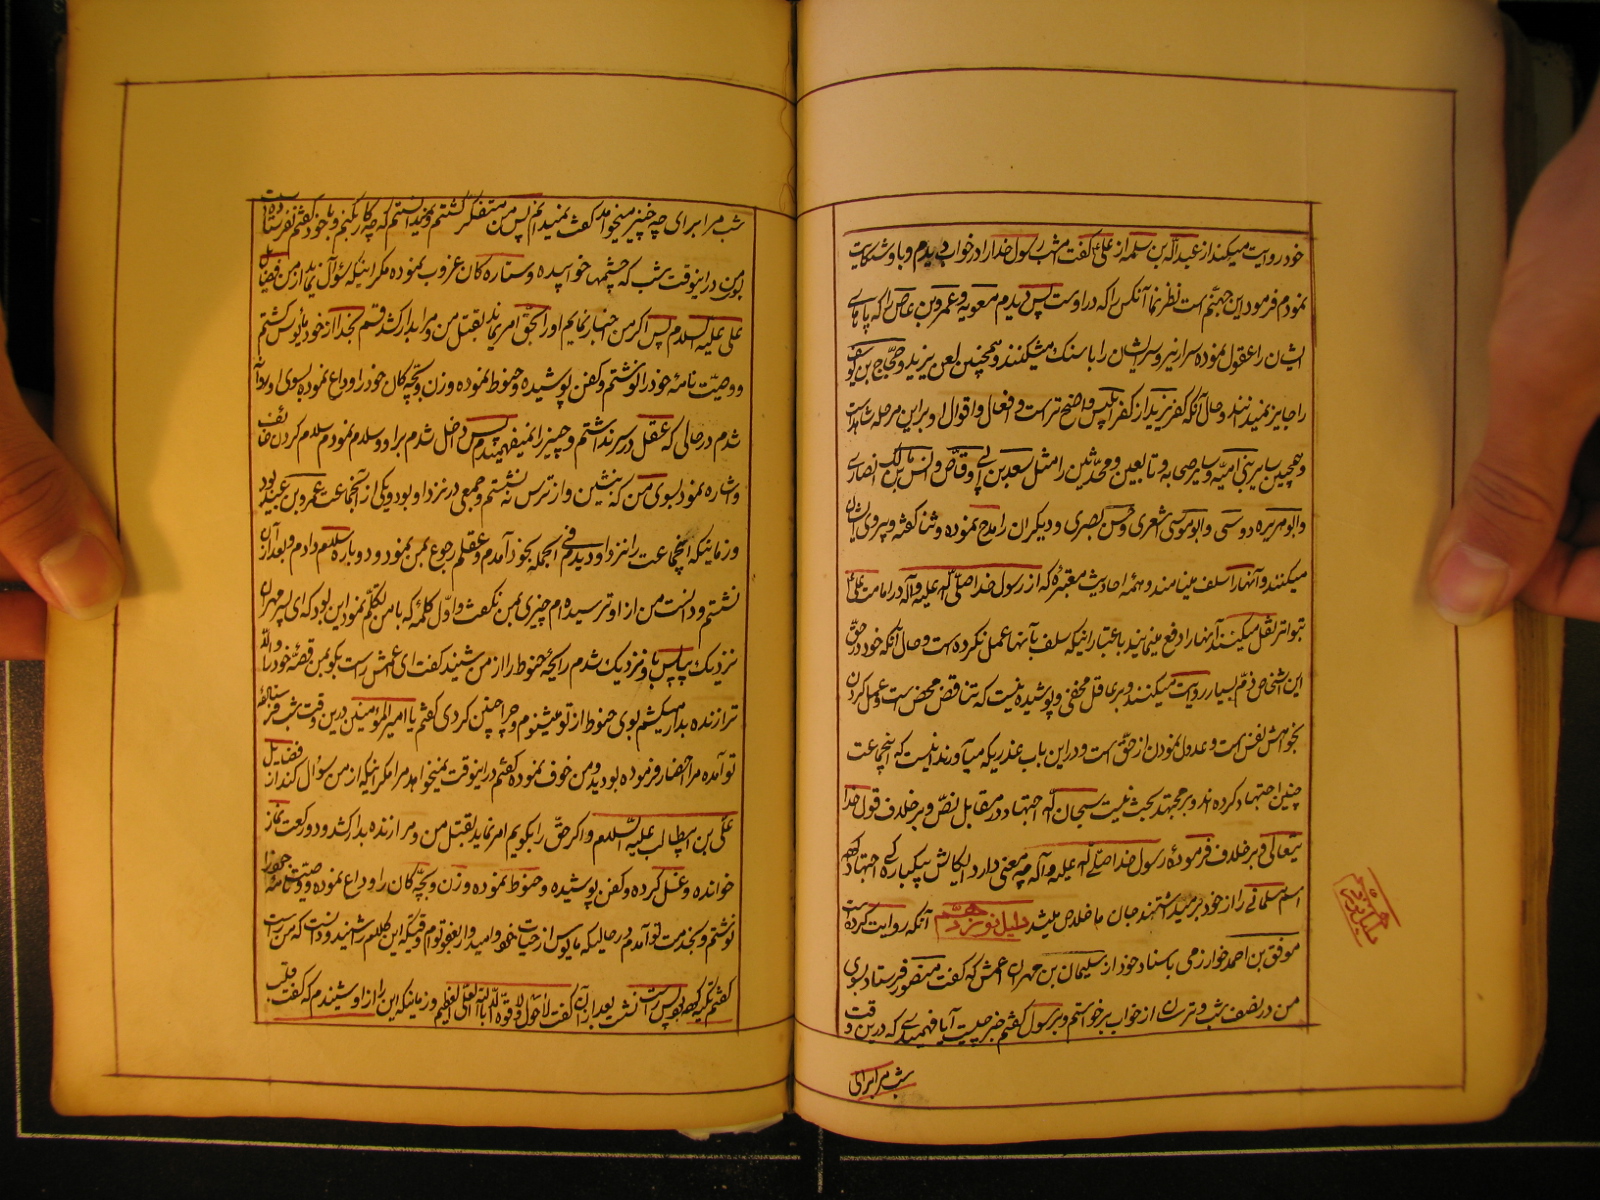 خود روایت میکند از عبد الله بن سلمه از علی ع گفت شب رسول خدا را در خواب دیدم و باو شکایت
نمودم فرمود این جهنم است نظر نما آنکس را که در اوست پس دیدم معویه و عمرو بن عاص را که پاهای
ایشان را عقول نموده سرازیر و سر ایشان را با سنک میشکنند و همچنین لعن یزید و حجاج بن یوسف
را جایز نمیدانند و حال آنکه کفر یزید از کفر ابلیس واضح تر است و افعال و اقوال او بر این مرحله شاهد است
و همچنین سایر بنی امیه و سایر صحابه و تابعین و محدثین را مثل سعد بن ابی وقاص و انس بن مالک انصاری
و ابو هریره دوسی و ابو موسی اشعری و حسن بصری و دیگران را مدح نموده و ثنا گفته و پیروی ایشان
میکنند و آنها را سلف مینامند و همه احادیث معتبره که از رسول خدا صلی الله علیه و آله در امامت علی ع
بتواتر نقل میکنند آنها را دفع مینمایند باعتبار اینکه سلف بآنها عمل نکرده است و حال آنکه خود در حق
این اشخاص ذم بسیار روایت میکنند و بر عاقل مخفی و پوشیده نیست که تناقض محض است و عمل کردن
بخواهش نفس است و عدول نمودن از حق است و در این باب عذریکه میآورند اینست که اینجماعت
چنین اجتهاد کرده اند و بر مجتهد بحث نیست سبحان الله اجتهاد در مقابل نص و بر خلاف قول خدا
یتعالی و بر خلاف فرموده رسول خدا صلی الله علیه و آله چه معنی دارد ایکاش یکباره اجتهاد کرده
اسم مسلمانی را از خود بر میداشتند جان ما خلاص میشد دلیل نوزدهم آنکه روایت کرده است
موفق بن احمد خوارزمی باسناد خود از سلیمان بن مهران اعمش که گفت منصور فرستاد بسوی
من در نصف شب و ترسان از خواب برخواستم و برسول گفتم خبر چیست آیا فهمیدی که درین وقت
شب مرا برای
شب مرا برای چه چیز میخواهد گفت نمیدانم پس من متفکر گشتم و نمیدانستم که چه کار بکنم و با خود گفتم نفرستاده است
بمن در اینوقت شب که چشمها خوابیده و ستاره کان غروب نموده مکر اینکه سؤال نماید از من فضایل
علی علیه السلام پس اکر من اخبار نمایم او را بحق امر نماید بقتل من و مرا بدار کشد قسم بخدا از خود مأیوس گشتم
و وصیت نامه خود را نوشتم و کفن پوشیده و حنوط نموده و زن و بچه کان خود را وداع نموده بسوی او روانه
شدم در حالی که عقل در سر نداشتم و چیزی را نمیفهمیدم پس داخل شدم بر او و سلام نمودم سلام کردن خائف
و اشاره نمود بسوی من که بنشین و از ترس نه نشستم و جمعی در نزد او بود و یکی از آنجماعت عمرو بن عبید بود
و زمانیکه اینجماعت را نزد او دیدم فی الجمله بخود آمدم و عقلم رجوع بمن نمود و دوباره سلام دادم و بعد از آن
نشستم و دانست من از او ترسیده ام چیزی بمن نکفت و اول کلمه که با من تکلم نمود این بود که ای پسر مهران
نزدیک بیا پس باو نزدیک شدم رایحه حنوط را از من شنید گفت ای اعمش راست بکو بمن قصه خود را و الا
ترا زنده بدار میکشم بوی حنوط از تو میشنوم و چرا چنین کردی گفتم یا امیر المؤمنین درین وقت شب فرستاده
تو آمده مرا احضار فرموده بودید و من خوف نموده گفتم در اینوقت نمیخواهد مرا مکر اینکه از من سؤال کند از فضایل
علی بن ابیطالب علیه السلام و اکر حق را بکویم امر نماید بقتل من و مرا زنده بدار کشد و دو رکعت نماز
خوانده و غسل کرده و کفن پوشیده و حنوط نموده و زن و بچه کان را وداع نموده و وصیت نامه خود را
نوشتم و بخدمت تو آمدم در حالیکه مأیوس از حیات خود و امیدوار بعفو توام وقتیکه این کلام را شنید و دانست که من راست
گفتم تکیه کرده بود پس راست نشست بعد از آن گفت لا حول و لا قوة الا بالله العلی العظیم و زمانیکه این را از او شنیدم که گفت قلبم